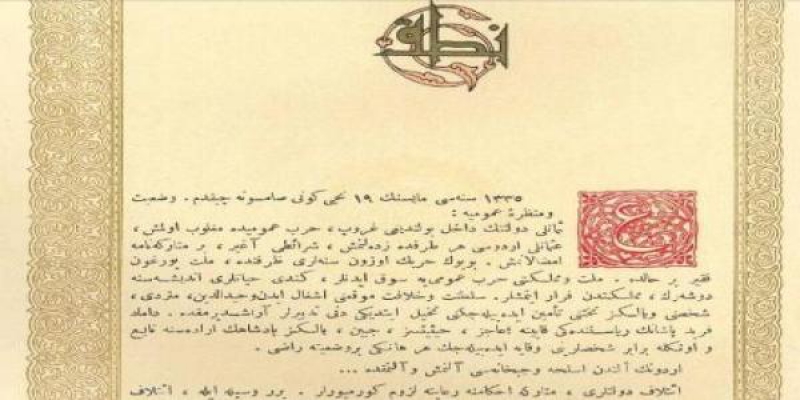 نطق
۱۳۳۵ سنه‌سی مایسنك ۱۹ نجی كونی صامسونه چیقدم . وضعیت
ومنظرهٔ عمومیه :
عثمانلی دولتنك داخل بولندیغی غروپ ، حرب عمومیده مغلوب اولمش ،
عثمانلی اردوسی هر طرفده زده‌لنمش ، شرائطی آغیر ، بر متاركه‌نامه
امضالانمش . بویوك حربك اوزون سنه‌لری ظرفنده ، ملت یورغون
فقیر بر حالده . ملت و مملكتی حرب عمومی‌یه سوق ایدنلر ، كندی حیاتلری اندیشه‌سنه
دوشه‌رك ، مملكتدن فرار ایتمشلر . سلطنت وخلافت موقعنی اشغال ایدن وحیدالدین ، متردی ،
شخصنی ویالكز تختنی تأمین ایده‌بیله‌جكنی تخیل ایتدیكی دنی تدبیرلر آراشدیرمقده . داماد
فرید پاشانك ریاستنده‌كی قابینه ؛ عاجز ، حیثیتسز ، جبین ، یالكز پادشاهك اراده‌سنه تابع
و اونكله برابر شخصلرینی وقایه ایده‌بیله‌جك هر هانكی بر وضعیته راضی .
اردونك الندن اسلحه و جبخانه‌سی آلنمش و آلنمقده ...
ائتلاف دولتلری ، متاركه احكامنه رعایته لزوم كورمیورلر . برر وسیله ایله ، ائتلاف